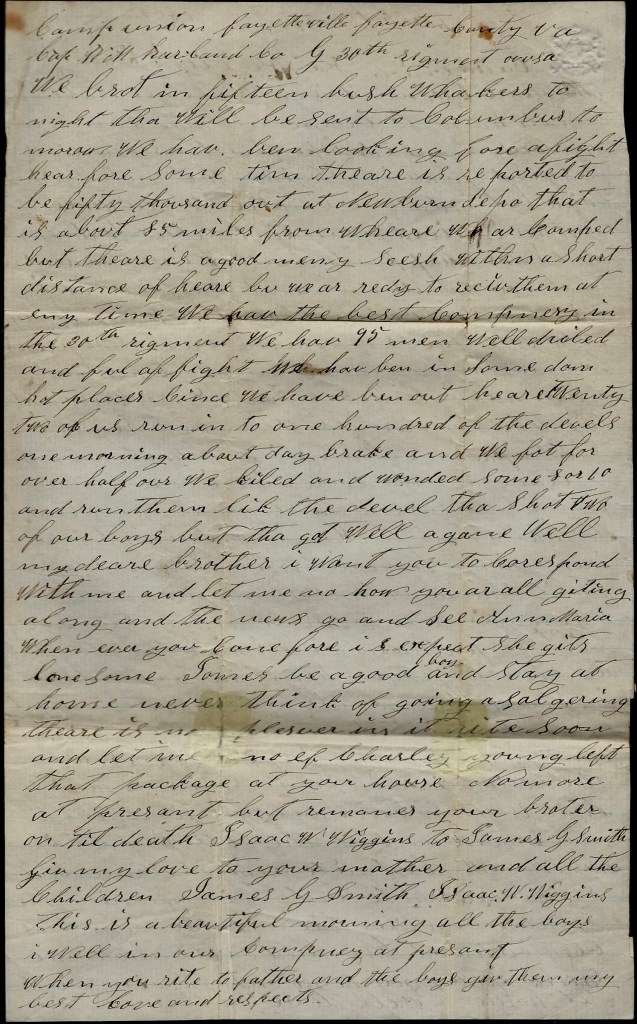 Camp union fayetteville fayette County va
Cap Will Harland Co G 30th rigment ovusa
We brot in fifteen bush Whakers to
night tha Will be sent to Columbus to
morow We hav. ben looking fore a fight
hear fore some tim theare is reported to
be fifty thousand out at Newburn depo that
is about 85 miles from Wheare We ar Comped
but theare is a good meny Secsh within a Short
distance of heare bu we ar redy to reciv them at
eny time We hav the best Compnery in
the 30th rigment We hav 95 men Well driled
and ful of fight We hav ben in Some dam
hot places Cince We have ben out heare twenty
two of us run in to one hundred of the devels
one morning about day brake and We fot for
over half our We kiled and wonded some 8 or 10
and run them lik the devel tha Shot two
of our boys but tha got Well agane Well
my deare brother i Want you to Corespond
With me and let me no how you ar all giting
along and the news go and See Ann Maria
When ever you Can fore i s expect she gits
lonesome James be a good boy and stay at
home never think of going a salgering
theare is no plesuer in it rite soon
and let me no ef Charley young left
that package at your house No more
at present but remanes your broter
on til death Isaac W Wiggins to James G Smith
Giv my love to your mother and all the
Children James G Smith Isaac. W. Wiggins
This is a beautiful morning all the boys
i Well in our Compney at present
When you rite to father and the boys giv them my
best Love and respects.